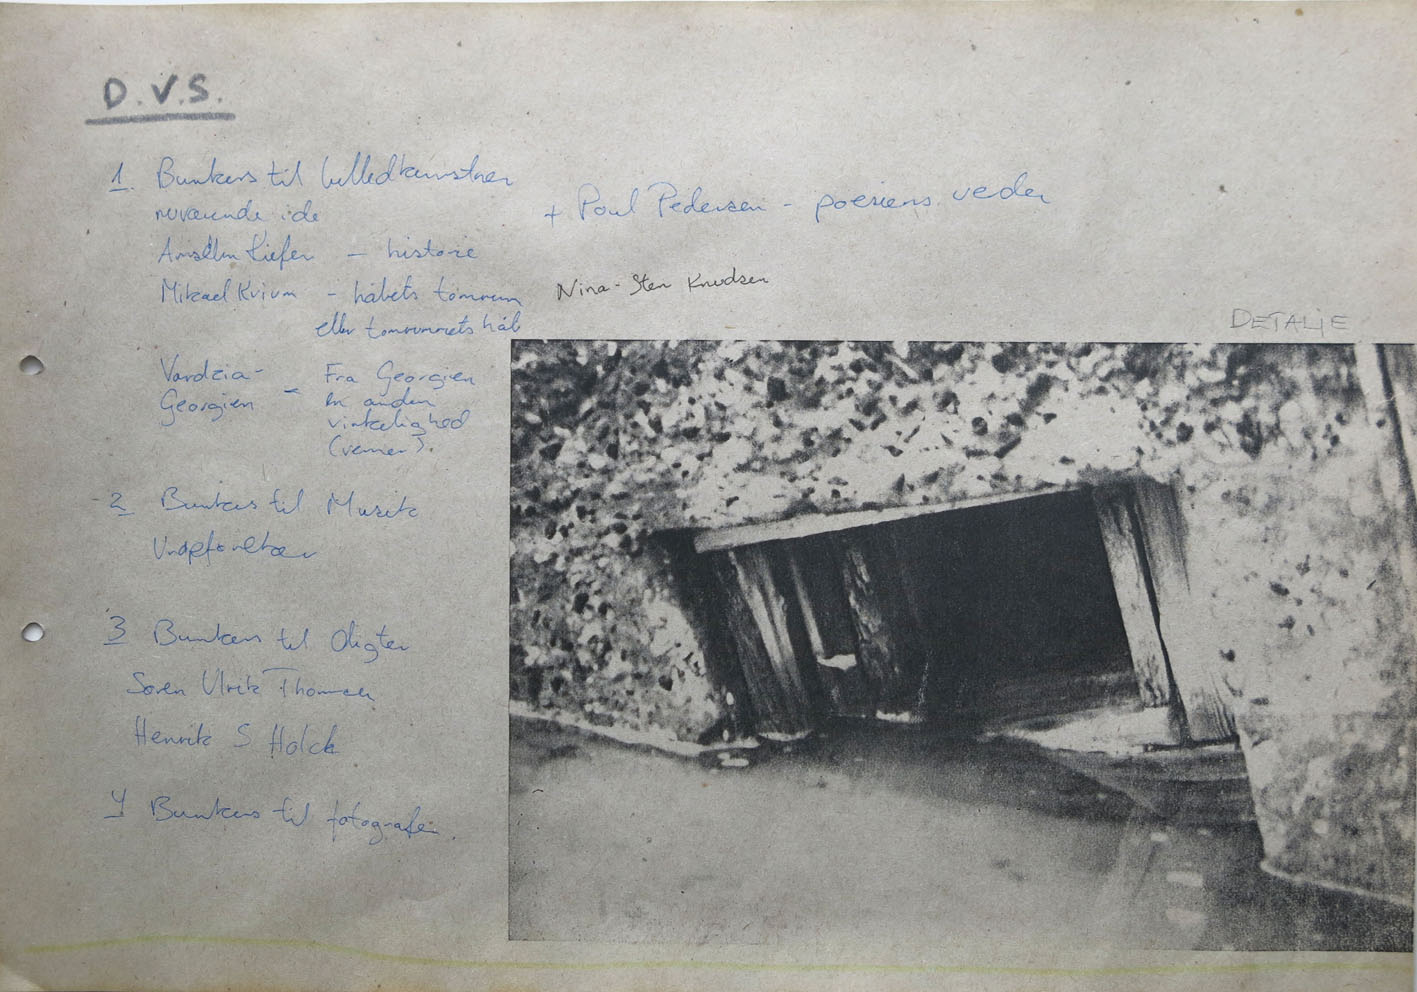 D.V.S.
1. Bunkers til billedkunstner
nuværende ide
+ Poul Pedersen - poesiens
Anselm Kiefer - historie
Mikael Kvium - håbets tomrum
eller tomrummets håb
Nina-Sten Knudsen
DETALJE
Vardzia-
Georgien - Fra Georgien
en anden
virkelighed
2 Bunkers til Musik
3 Bunkers til digter
Søren Ulrik Thomsen
Henrik S Holck
4 Bunkers til fotografen